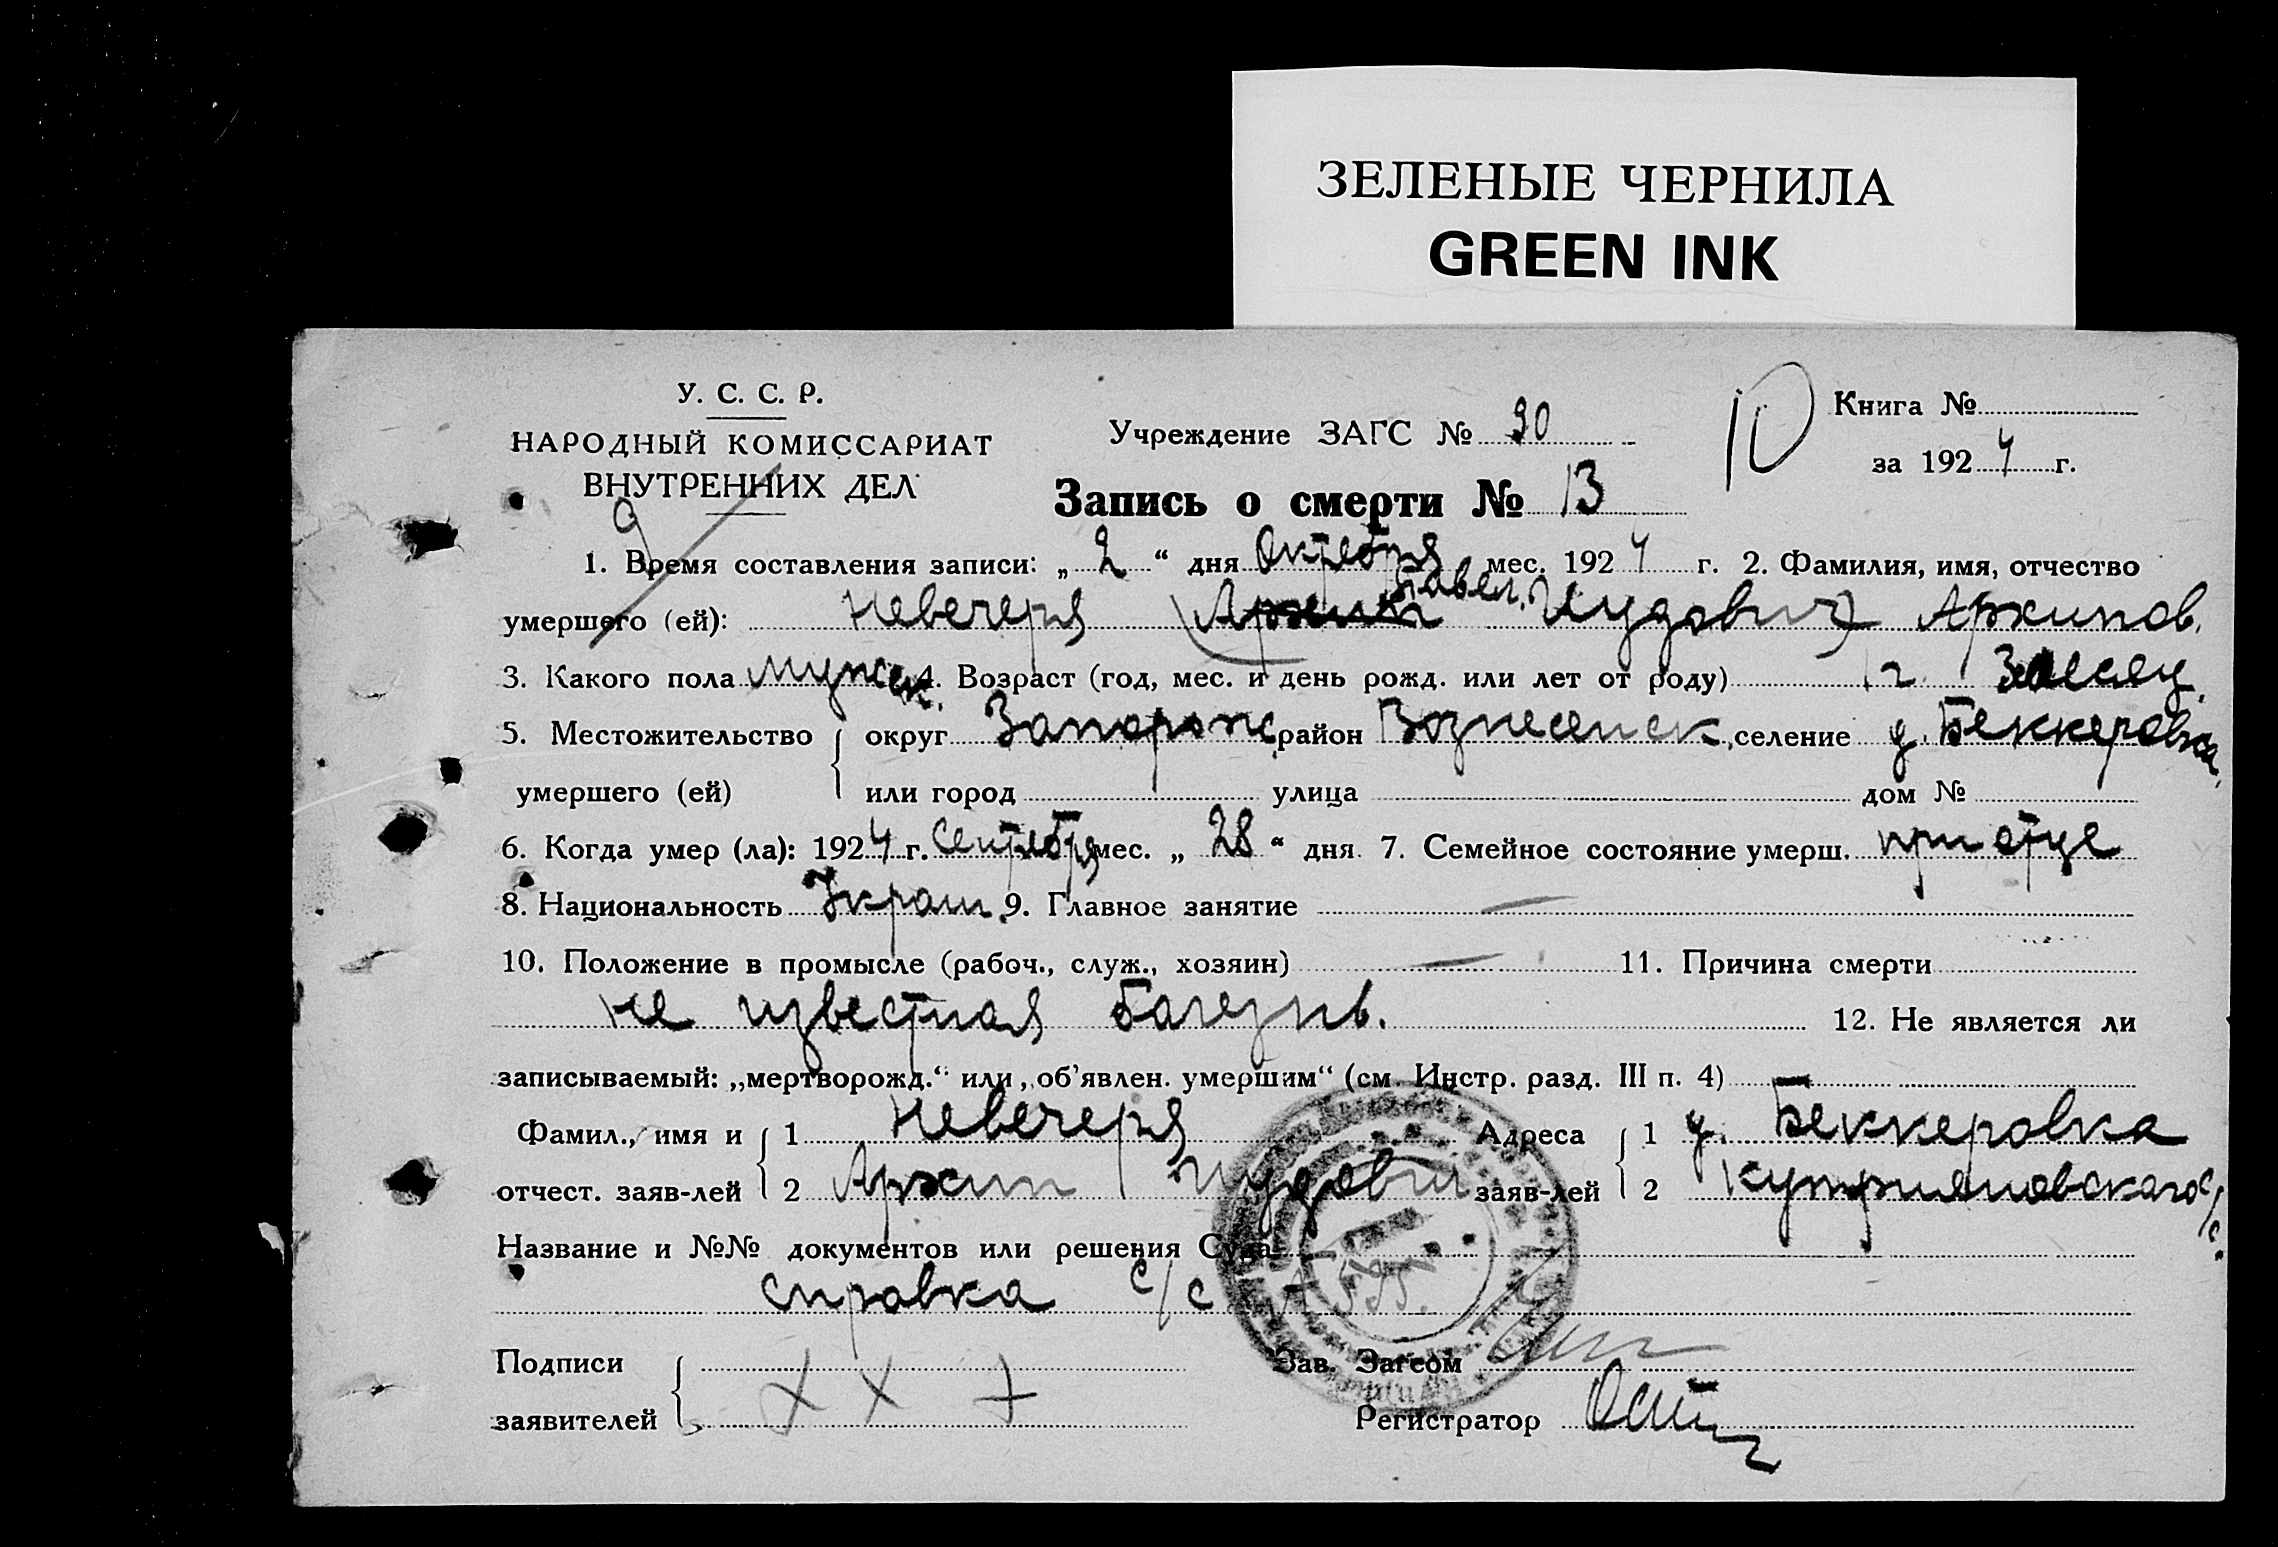 ЗЕЛЕНЫЕ ЧЕРНИЛА
GREEN INK
У. С. С. Р.
НАРОДНЫЙ КОМИССАРИАТ
ВНУТРЕННИХ ДЕЛ
Учреждение ЗАГС № 30
10
Книга №
за 1924 г.
Запись о смерти № 13
9
1. Время составления записи: „ 2 “ дня Октября мес. 1924 г. 2. Фамилия, имя, отчество
умершего (ей): Невечеря (Архип Павел. Иудович) Архипов.
3. Какого пола мужск. 4. Возраст (год, мес. и день рожд. или лет от роду) 1 г. 3 месяц.
5. Местожительство округ Запорож. район Вознесенск, селение д. Беккеровка.
умершего (ей) или город улица дом №
6. Когда умер (ла): 1924 г. Сентября мес. „ 28 “ дня. 7. Семейное состояние умерш. при отце
8. Национальность Украин. 9. Главное занятие —
10. Положение в промысле (рабоч., служ., хозяин) — 11. Причина смерти
не известная балезнь. 12. Не является ли
записываемый: „мертворожд.“ или „об’явлен. умершим“ (см. Инстр. разд. III п. 4)
Фамил., имя и 1 Невечеря Адреса 1 д. Беккеровка
отчест. заяв-лей 2 Архип Иудович заяв-лей 2 Куприяновского с/с.
Название и №№ документов или решения Суда
справка с/с
Подписи Зав. Загсом
заявителей X X + Регистратор